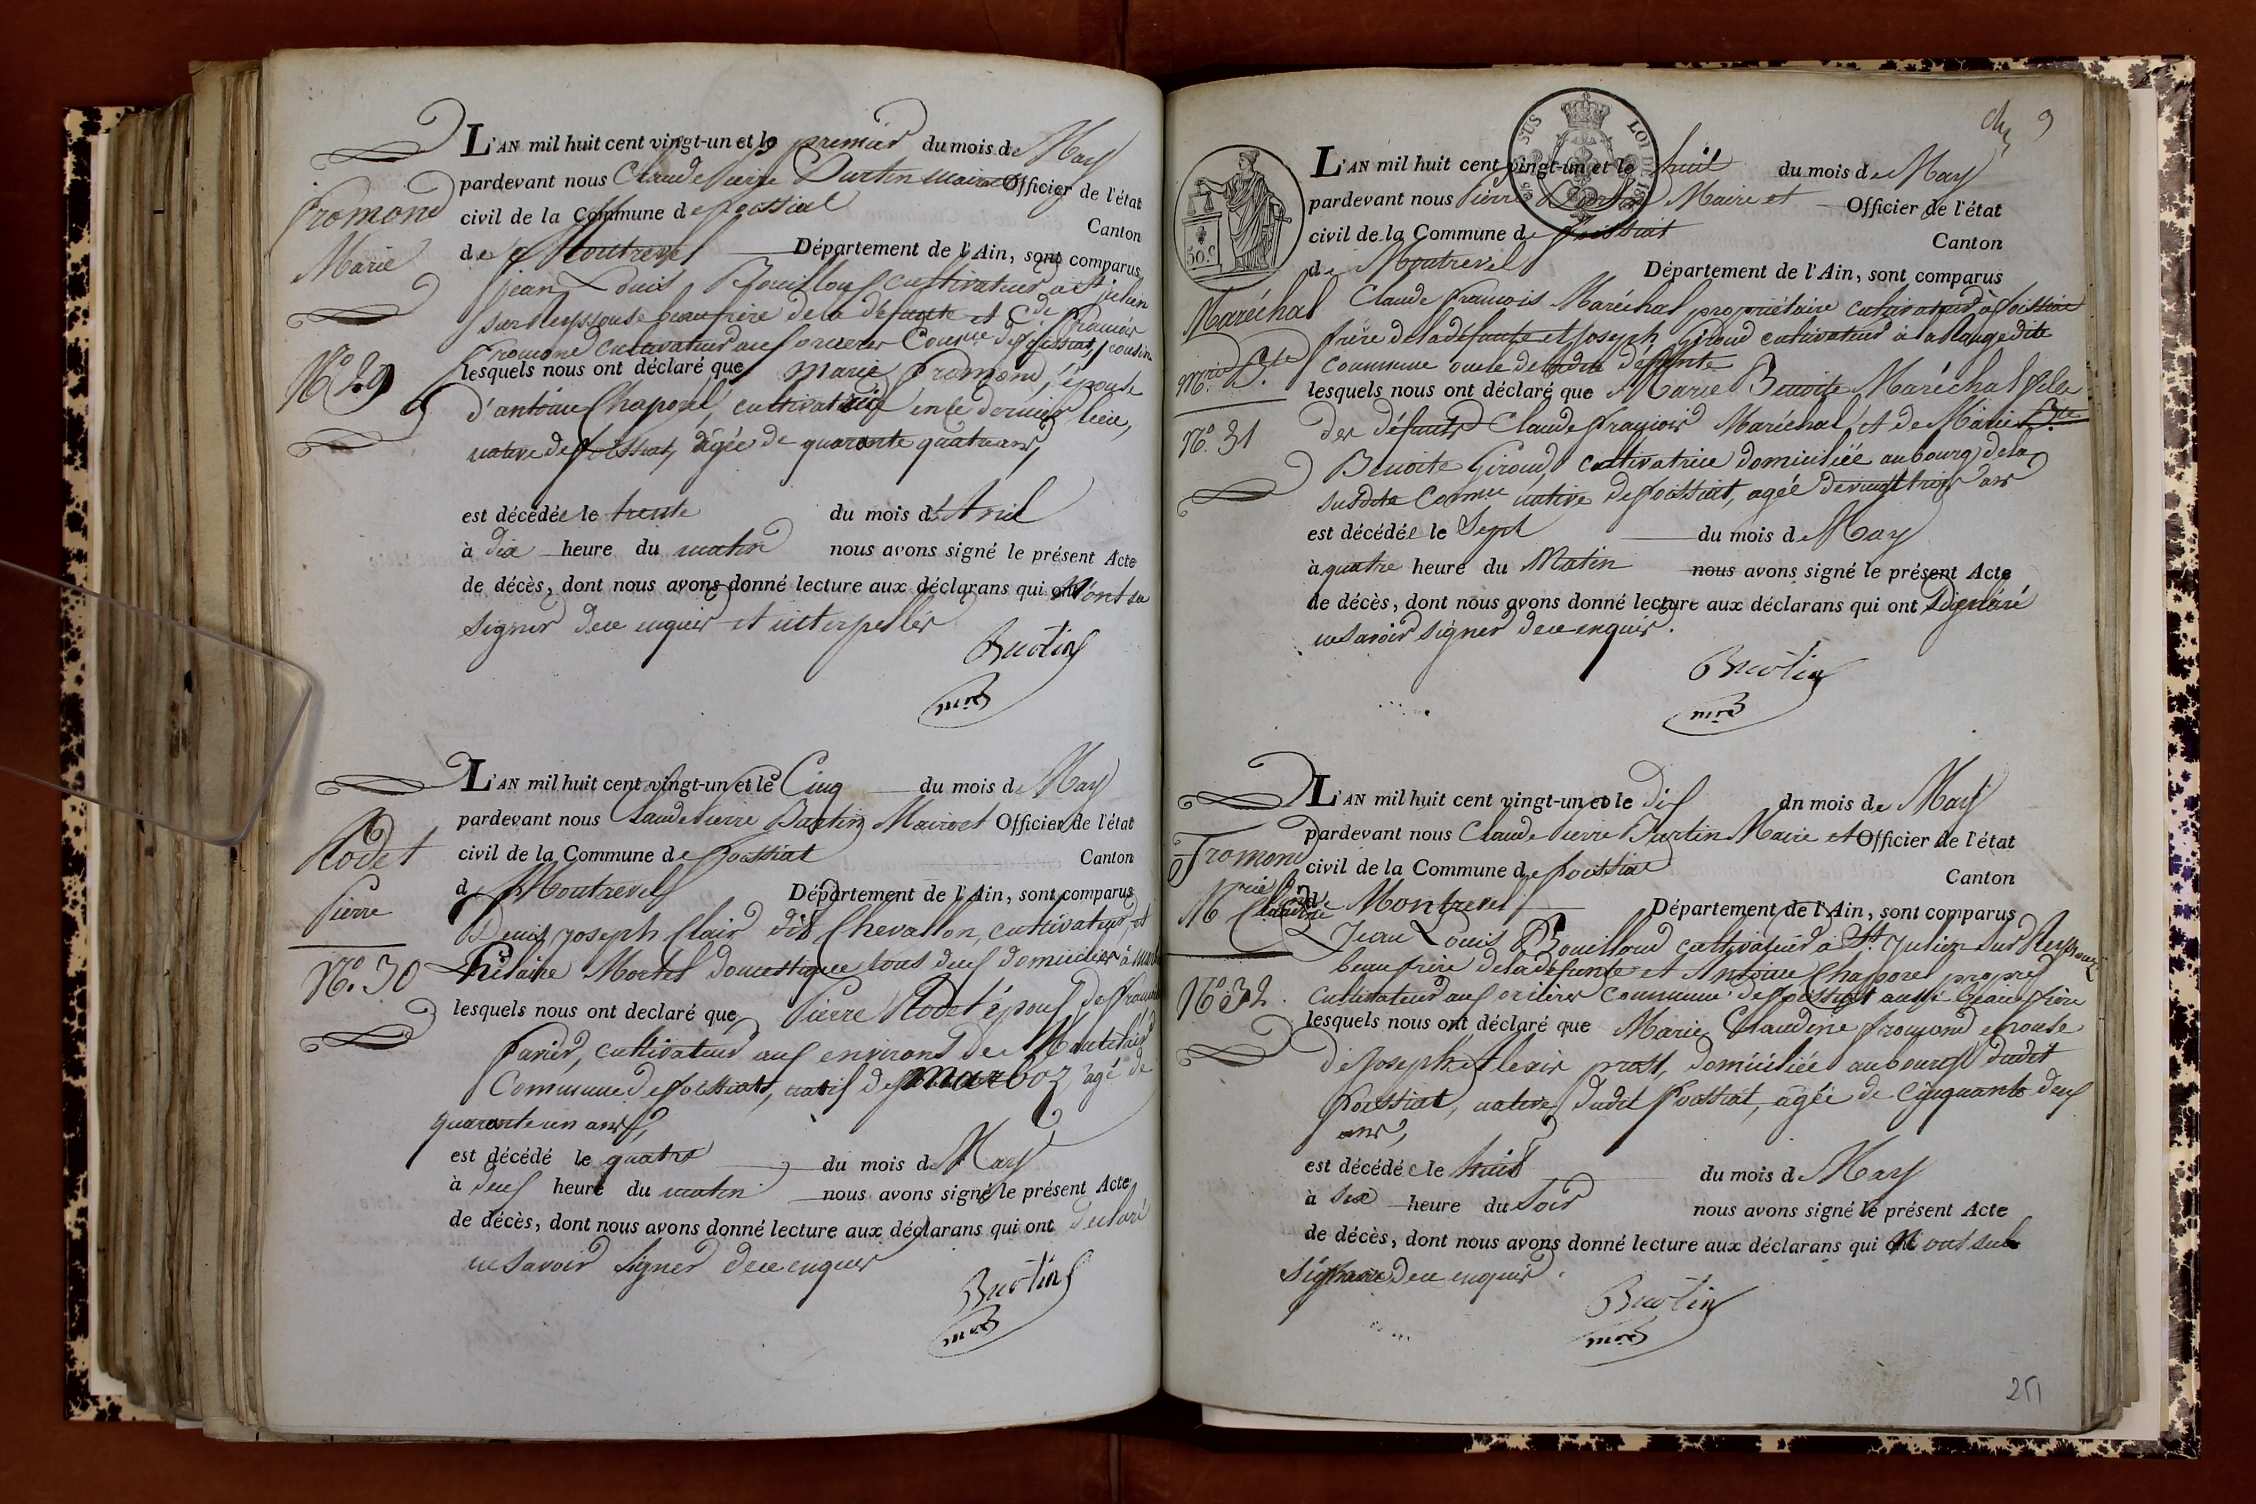 L'AN mil huit cent vingt-un et le premier du mois de May
pardevant nous Claude pierre Burtin maire Officier de l'état
civil de la Commune de foissiat Canton
de Montrevel Département de l'Ain, sont comparus
jean Louis Bouilloux cultivateur à St julien
sur Reyssouse beaufrère de la défunte et Cde françois
fromond cultivateur aux orcieres Comne de foissiat, cousin
lesquels nous ont déclaré que marie fromond, épouse
d'antoine Chaporel, cultivatrice en ce dernier lieu,
native de foissiat, âgée de quarante quatre ans,
est décédée le trente du mois d'Avril
à dix heure du matin nous avons signé le présent Acte
de décès, dont nous avons donné lecture aux déclarans qui N'ont su
signer de ce enquis et interpellés
Burtin
mre
fromond
Marie
No. 29
L'AN mil huit cent vingt-un et le Cinq du mois de May
pardevant nous Claude Pierre Burtin Maire et Officier de l'état
civil de la Commune de foissiat Canton
de Montrevel Département de l'Ain, sont comparus
Denis joseph Clair dit Chevallon, cultivateur, et
hilaire Mortel domestique tous deux domiciliés à
lesquels nous ont declaré que Pierre Rodet époux de
Farier, cultivateur aux environs de
Commune de foissiat, natif de marboz, agé de
quarante un ans,
est décédé le quatre du mois de May
à deux heure du matin nous avons signé le présent Acte
de décès, dont nous avons donné lecture aux déclarans qui ont declaré
ne savoir signer de ce enquis
Burtin
mre
Rodet
Pierre
No. 30
9
50.C
SUS
LOI DE 18
L'AN mil huit cent vingt-un et le huit du mois de May
pardevant nous Pierre Burtin Maire et Officier de l'état
civil de la Commune de foissiat Canton
de Montrevel Département de l'Ain, sont comparus
Claude françois Maréchal propriétaire cultivateur à foissiat
frère de la défunte et Joseph Giroud cultivateur à la Rauge dite
Commune oncle de ladite défunte
lesquels nous ont déclaré que Marie Benoite Maréchal fille
des défunts Claude françois Maréchal et de Marie Bte
Benoite Giroud, cultivatrice domiciliée au bourg de la
susdite Comne native de foissiat, agée de vingt trois ans
est décédée le Sept du mois de May
à quatre heure du Matin nous avons signé le présent Acte
de décès, dont nous avons donné lecture aux déclarans qui ont déclaré
ne savoir signer de ce enquis.
Burtin
mre
Maréchal
Mrie Bte
No. 31
L'AN mil huit cent vingt-un et le dix dn mois de May
pardevant nous Claude Pierre Burtin Maire et Officier de l'état
civil de la Commune de foissiat Canton
de Montrevel Département de l'Ain, sont comparus
Jean Louis Bouilloud cultivateur à St. Julien sur Reyssouze
beaufrère de la défunte et Antoine Chaporel propre
cultivateur aux orcières commune de foissiat aussi beaufrère
lesquels nous ont déclaré que Marie Claudine fromond epouse
de Joseph Alexis prost, domiciliée au bourg dudit
foissiat, native dudit foissiat, agée de cinquante deux
ans,
est décédée le huit du mois de May
à six heure du Soir nous avons signé le présent Acte
de décès, dont nous avons donné lecture aux déclarans qui N'ont sub
signer de ce enquis.
Burtin
mre
fromond
Mrie
Claudine
No. 32.
251